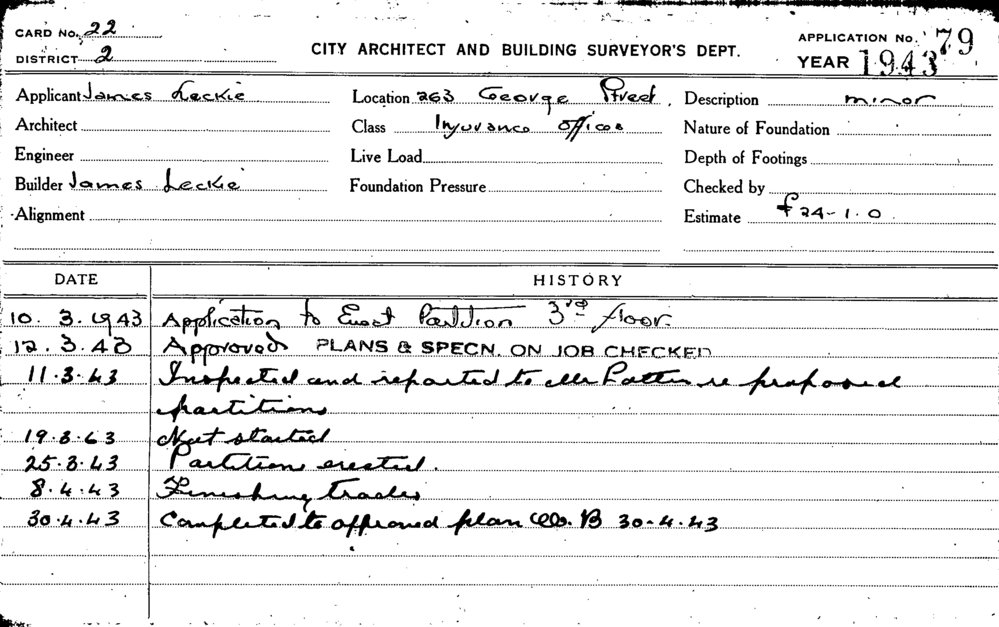 CARD No. 22
DISTRICT 2
CITY ARCHITECT AND BUILDING SURVEYOR'S DEPT.
APPLICATION No. 79
YEAR 1943
Applicant James Leckie
Location 263 George Street.
Description minor
Architect
Class Insurance offices
Nature of Foundation
Engineer
Live Load
Depth of Footings
Builder James Leckie
Foundation Pressure
Checked by
Alignment
Estimate £24-1.0
DATE HISTORY
10. 3. 1943 Application to Erect Partition 3rd floor.
12. 3. 43 Approved PLANS & SPECN. ON JOB CHECKED
11. 3. 43 Inspected and reported to Mr re proposed
partitions
19. 3. 43 Not started
25. 3. 43 Partitions erected.
8. 4. 43 Finishing trades
30. 4. 43 Completed to approved plan B 30-4-43